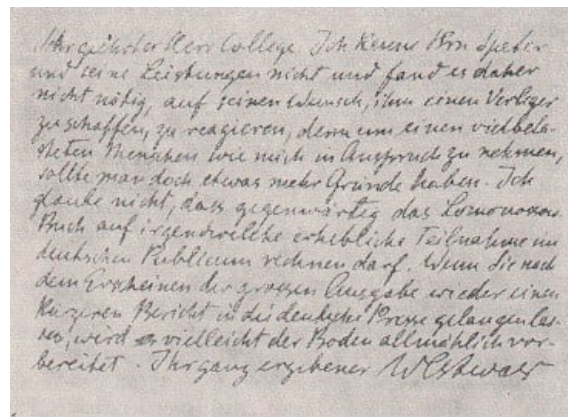 Sehr geehrter Herr College. Ich kenne Hrn Speter
und seine Leistungen nicht und fand es daher
nicht nötig, auf seinen Wunsch, ihm einen Verleger
zu schaffen, zu reagieren, denn um einen vielbela-
steten Menschen wie mich in Anspruch zu nehmen,
sollte man doch etwas mehr Gründe haben. Ich
glaube nicht, dass gegenwärtig das Lomonossow
Buch auf irgendwelche erhebliche Teilnahme im
deutschen Publicum rechnen darf. Wenn Sie nach
dem Erscheinen der grossen Ausgabe wieder einen
kürzeren Bericht in die deutsche Presse gelangen las-
sen, wird es vielleicht der Boden allmählich vor-
bereitet. Ihr ganz ergebener WOstwald